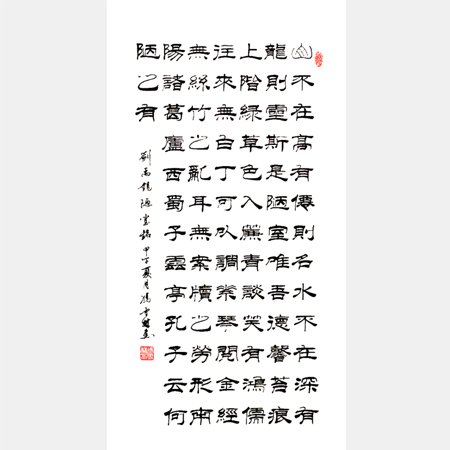 山不在高有僊則名水不在深有
龍則靈斯是陋室唯吾德馨苔痕
上階綠草色入簾青談笑有鴻儒
往來無白丁可以調素琴閱金經
無絲竹之亂耳無案牘之勞形南
陽諸葛廬西蜀子雲亭孔子云何
陋之有
劉禹錫陋室銘甲午夏月馮雪書